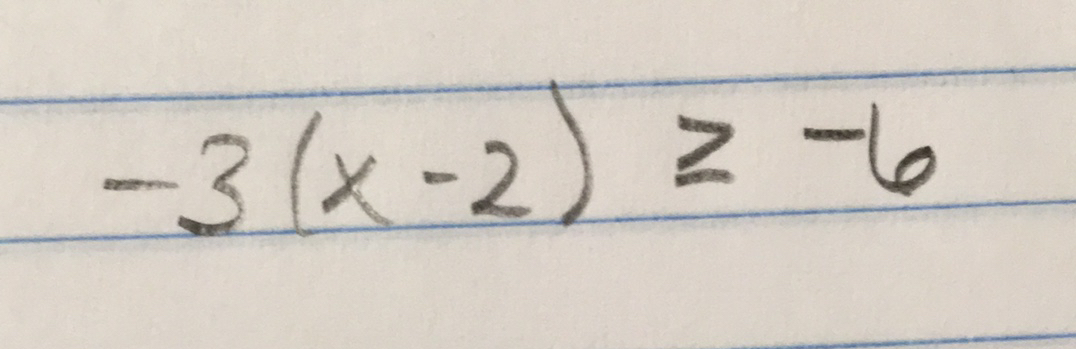 -3(x-2) ≥ -6